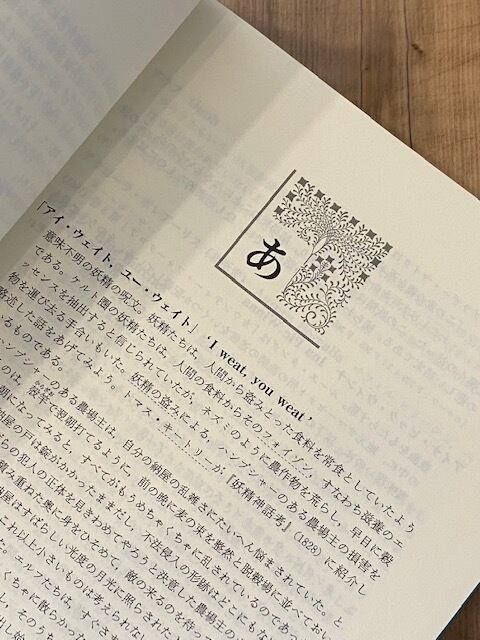 あ
「アイ・ウェイト、ユー・ウェイト」 ‘I weat, you weat’
意味不明の妖精の呪文。妖精たちは、人間から盗みとった食料を常食としていたよう
である。ケルト圏の妖精たちは、人間の食料からそのフォイゾン、すなわち滋養のエ
ッセンスを抽出すると信じられていたが、ネズミのように農作物を荒らし、早目に穀
物を運び去る手合いもいた。妖精の盗みによる、ハンプシャーのある農場主の損害を
略述した話をあげてみよう。トマス・キートリーが『妖精神話考』(1828) に紹介し
いるものである。
ハンプシャーのある農場主は、自分の納屋の乱雑さにたいへん悩まされていた。と
のは、殻竿で翌朝打てるように、前の晩に麦の束を整然と脱穀場に並べてお
朝になってみると、すべてがもうめちゃくちゃに乱されているのであ
納屋の戸は錠がかかったままだし、不法侵入の形跡はどこにもない
らの犯人の正体を見きわめてやろうと決意した農場主の
積み重ねた奥に身をひそめて、敵の来るのを待っ
納屋はすばらしい光度の月光に照らされた
これ以上小さいものは考えられない
た。エルフたちは、すぐさま
くちゃに散らかった